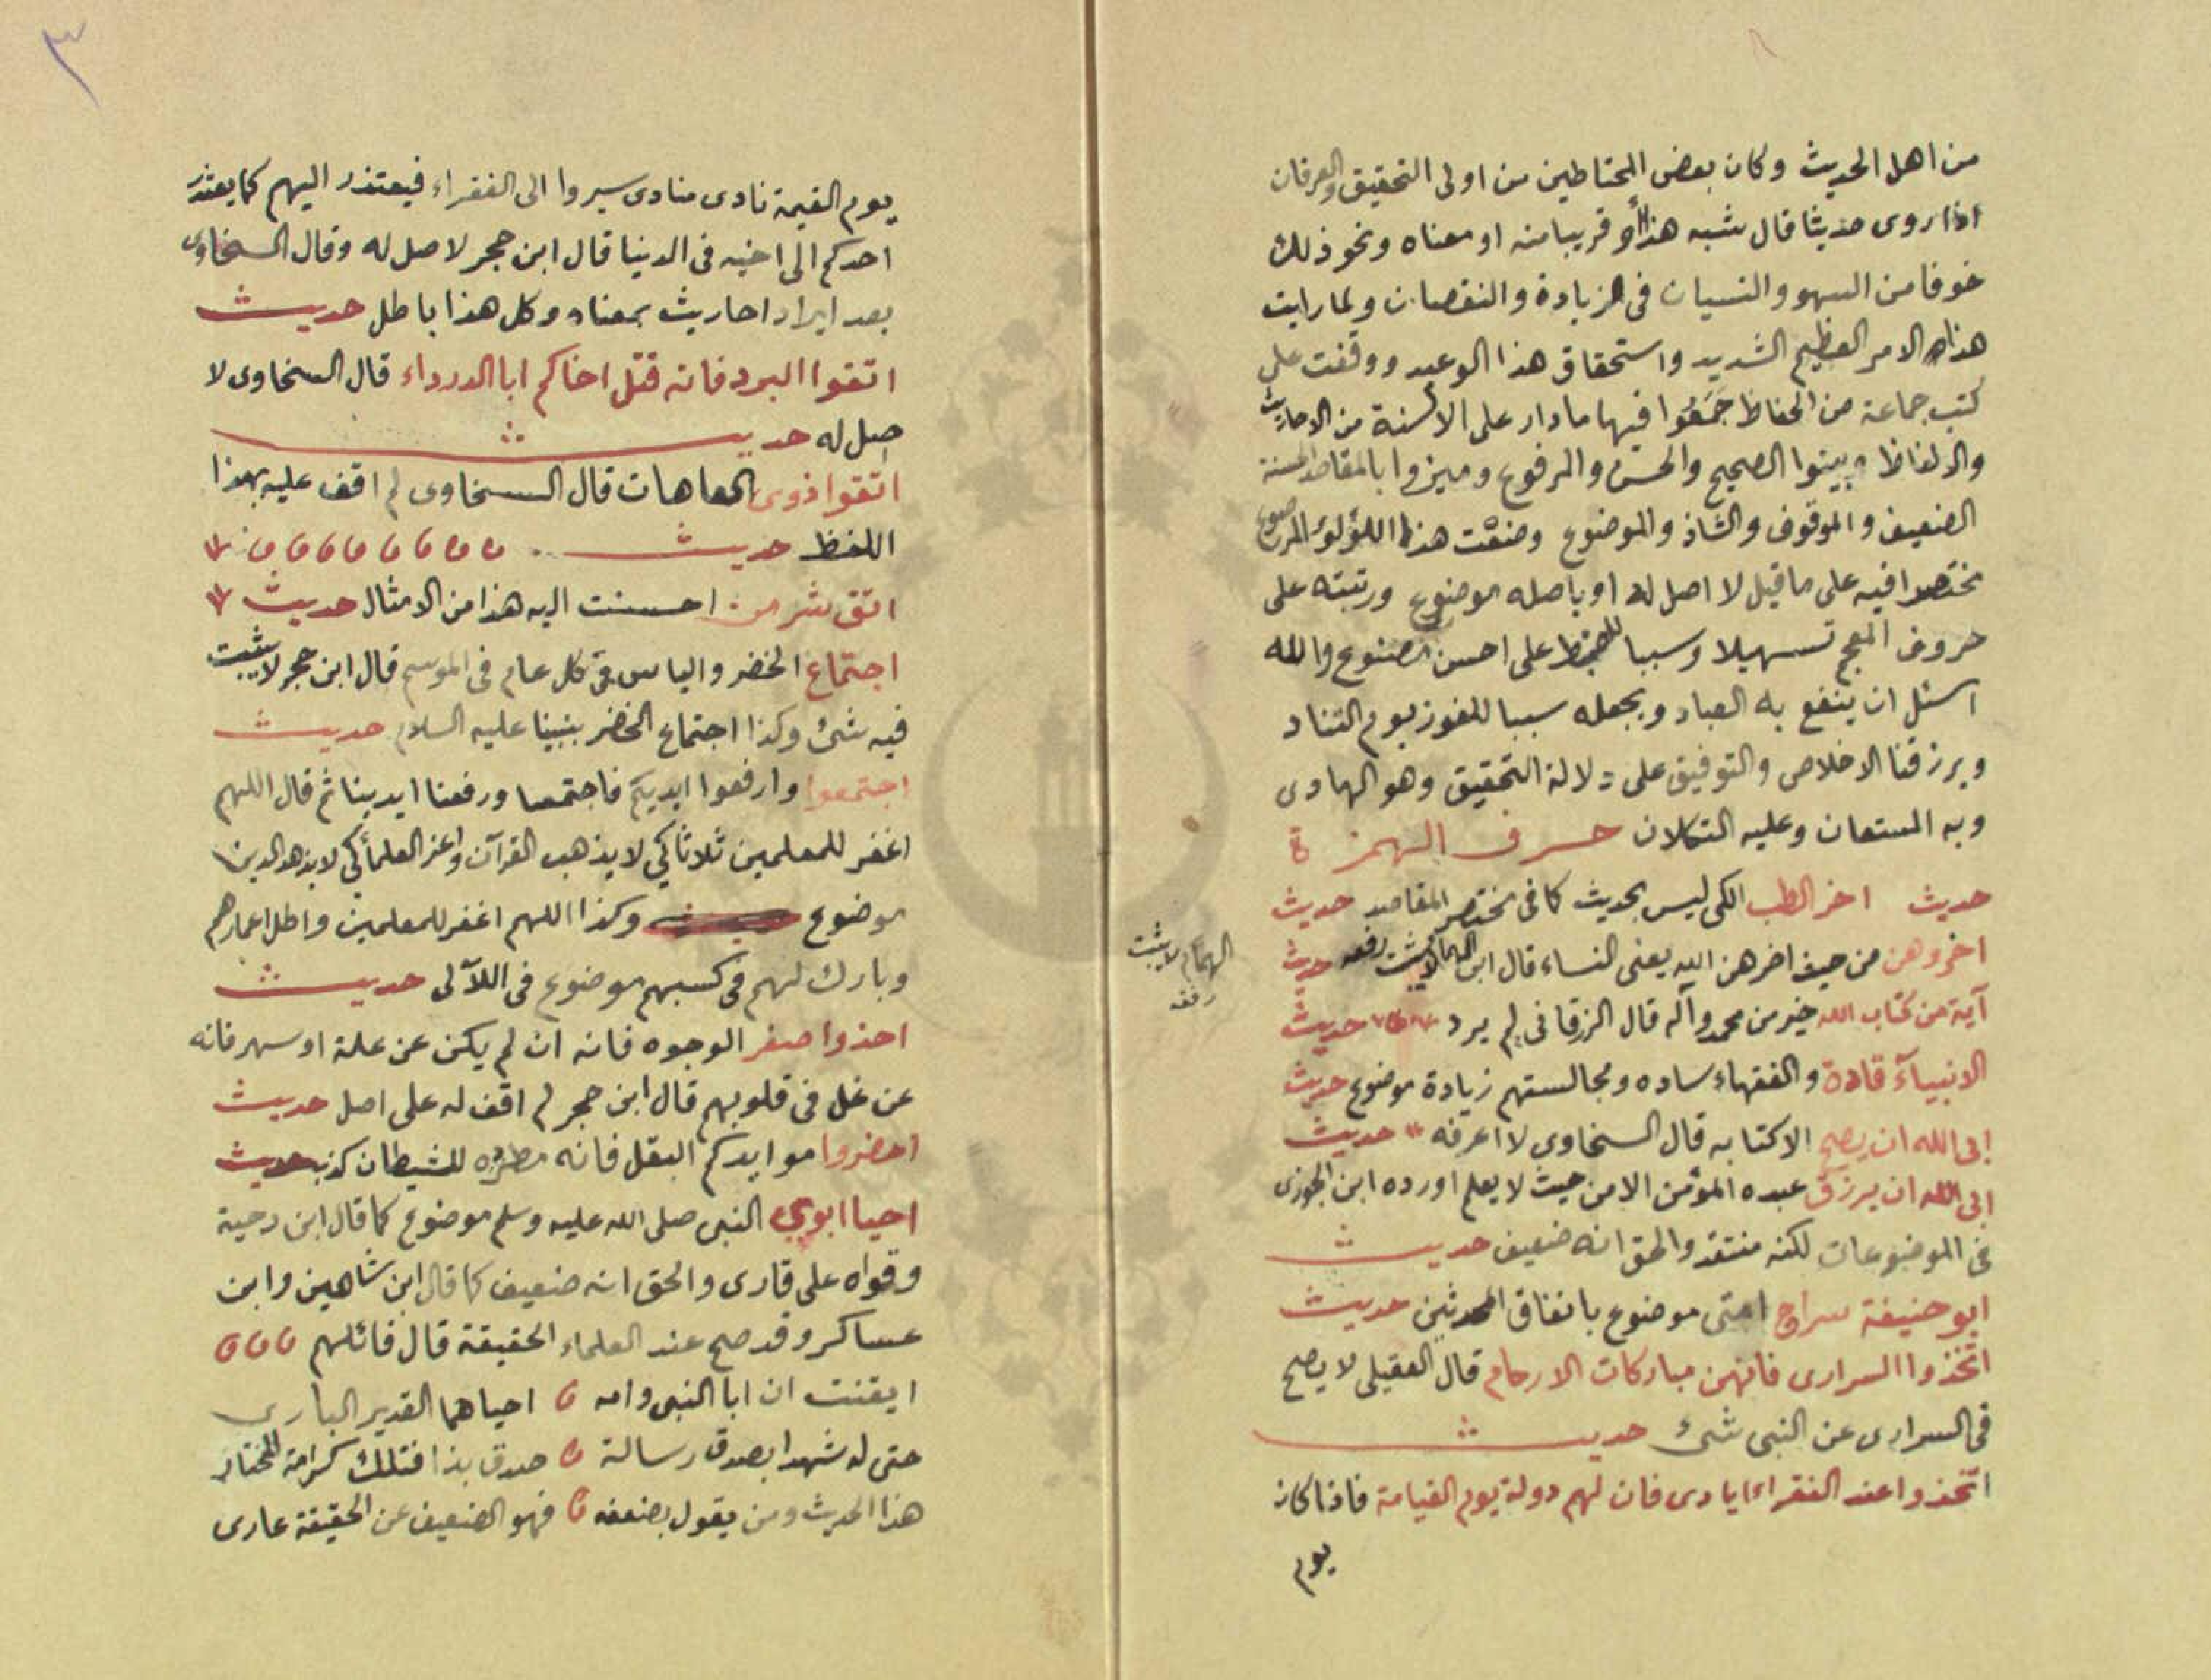 من اهل الحديث وكان بعض المحتاطين من اولى التحقيق والعرفان
اذا روى حديثا قال شبه هذا أو قريبا منه او معناه ونحو ذلك
خوفا من السهو والنسيان فى الزيادة والنقصان ولما رايت
هذا الامر العظيم الشديد واستحقاق هذا الوعيد ووقفت على
كتب جماعة من الحفاظ جَمَعُوا فيها ما دار على الألسنة من الاحاديث
والالفاظ وبينوا الصحيح والحسن والمرفوع وميزوا بالمقاصد الحسنة
الضعيف والموقوف والشاذ والموضوع وصنفت هذا اللؤلؤ المرصوع
مختصرا فيه على ما قيل لا اصل له او باصله موضوع ورتبته على
حروف المعجم تسهيلا وسببا للحفظ على احسن مصنوع والله
اسئل ان ينفع به العباد ويجعله سببا للفوز يوم التناد
ويرزقنا الاخلاص والتوفيق على دلالة التحقيق وهو الهادى
وبه المستعان وعليه التكلان حرف الهمزة
حديث اخر الطب الكى ليس بحديث كما فى مختصر المقاصد حديث
اخروهن من حيث اخرهن الله يعنى النساء قال ابن الهمام لا يثبت رفعه حديث
الهمام لا يثبت
رفعه
آية من كتاب الله خير من محمد وآله قال الزرقانى لم يرد حديث
الانبيآء قادة والفقهاء ساده ومجالستهم زيادة موضوع حديث
ابى الله ان يصح الا كتابه قال السخاوى لا اعرفه حديث
ابى الله ان يرزق عبده المؤمن الا من حيث لا يعلم اورده ابن الجوزى
فى الموضوعات لكنه منتقد والحق انه ضعيف حديث
ابو حنيفة سراج امتى موضوع باتفاق المحدثين حديث
اتخذوا السرارى فانهن مباركات الارحام قال العقيلى لا يصح
فى السرارى عن النبى شئ حديث
اتخذوا عند الفقراء ايادى فان لهم دولة يوم القيامة فاذا كان
يوم
٣
يوم القيمة نادى منادى سيروا الى الفقراء فيعتذر اليهم كما يعتذر
احدكم الى اخيه فى الدنيا قال ابن حجر لا اصل له وقال السخاوى
بعد ايراد احاديث بمعناه وكل هذا باطل حديث
اتقوا البرد فانه قتل اخاكم ابا الدرداء قال السخاوى لا
اصل له حديث
اتقوا ذوى العاهات قال السخاوى لم اقف عليه بهذا
اللفظ حديث
اتق شر من احسنت اليه هذا من الامثال حديث
اجتماع الخضر والياس فى كل عام فى الموسم قال ابن حجر لا يثبت
فيه شئ وكذا اجتماع الخضر بنبينا عليه السلام حديث
اجتمعوا وارفعوا ايديكم فاجتمعنا ورفعنا ايدينا ثم قال اللهم
اغفر للمعلمين ثلاثا كى لا يذهب القرآن واعز العلماء كى لا يذهد الدين
موضوع وكذا اللهم اغفر للمعلمين واطل اعمارهم
وبارك لهم فى كسبهم موضوع فى اللآلى حديث
احذوا صفر الوجوه فانه ان لم يكن عن علة او سهر فانه
عن غل فى قلوبهم قال ابن حجر لم اقف له على اصل حديث
احضروا موايدكم البقل فانه مطرده للشيطان كذب حديث
احيا ابوي النبى صلى الله عليه وسلم موضوع كما قال ابن دحية
وقواه على قارى والحق انه ضعيف كما قال ابن شاهين وابن
عساكر وقد صح عند العلماء الحقيقة قال قائلهم
ايقنت ان ابا النبى وامه احياهما القدير البارى
حتى له شهدا بصدق رسالة صدق بذا فتلك كرامة المختار
هذا الحديث ومن يقول بضعفه فهو الضعيف عن الحقيقة عارى